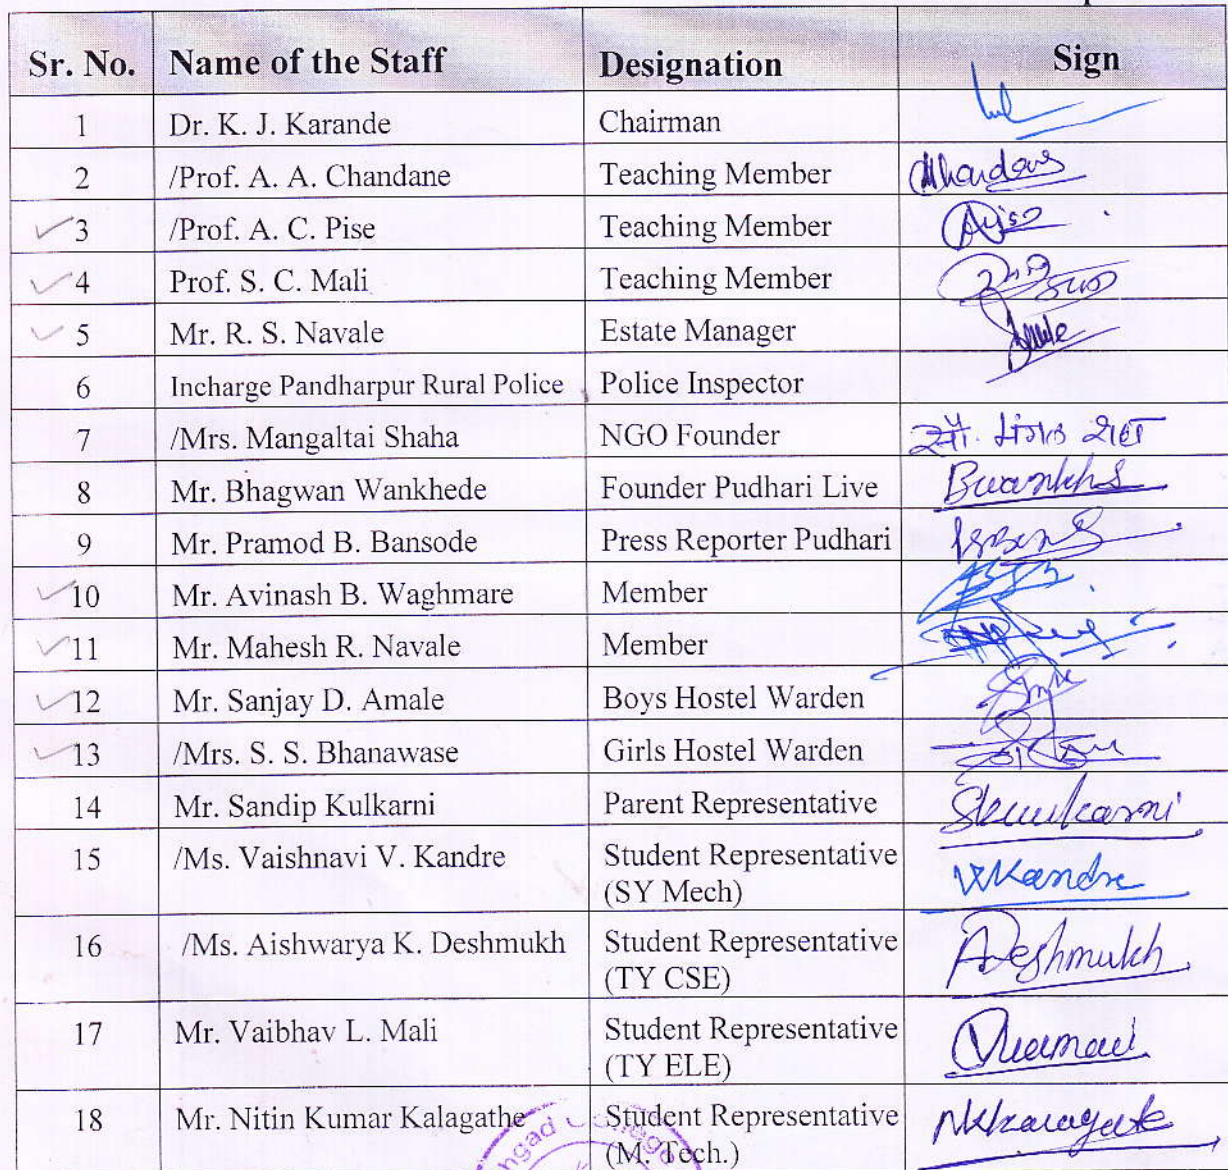 Sr. No. Name of the Staff Designation Sign
1 Dr. K. J. Karande Chairman
2 /Prof. A. A. Chandane Teaching Member
3 /Prof. A. C. Pise Teaching Member
4 Prof. S. C. Mali Teaching Member
5 Mr. R. S. Navale Estate Manager
6 Incharge Pandharpur Rural Police Police Inspector
7 /Mrs. Mangaltai Shaha NGO Founder
8 Mr. Bhagwan Wankhede Founder Pudhari Live
9 Mr. Pramod B. Bansode Press Reporter Pudhari
10 Mr. Avinash B. Waghmare Member
11 Mr. Mahesh R. Navale Member
12 Mr. Sanjay D. Amale Boys Hostel Warden
13 /Mrs. S. S. Bhanawase Girls Hostel Warden
14 Mr. Sandip Kulkarni Parent Representative Skulkarni
15 /Ms. Vaishnavi V. Kandre Student Representative VKandre
(SY Mech)
16 /Ms. Aishwarya K. Deshmukh Student Representative ADeshmukh
(TY CSE)
17 Mr. Vaibhav L. Mali Student Representative
(TY ELE)
18 Mr. Nitin Kumar Kalagathe Student Representative
(M. Tech.)